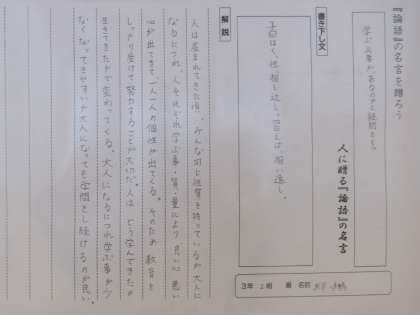 『論語』の名言を贈ろう
人に贈る『論語』の名言
3年 組 番 名前
書き下し文
子曰はく、性、相ひ近し。習えば、相ひ遠し。
解説
人は産まれてきた頃、みんな同じ性質を持っているが大人に
なるにつれ、人それぞれ学ぶ事・質・量により良い心悪い
心が出てきて、一人一人の個性が出てくる。そのため教育を
しっかり受けて努力することが大切だ。人はどう学んできたか
生きてきたかで変わってくる。大人になるにつれ学ぶ事が少
なくなってきやすいが大人になっても学問をし続けるのが良い。